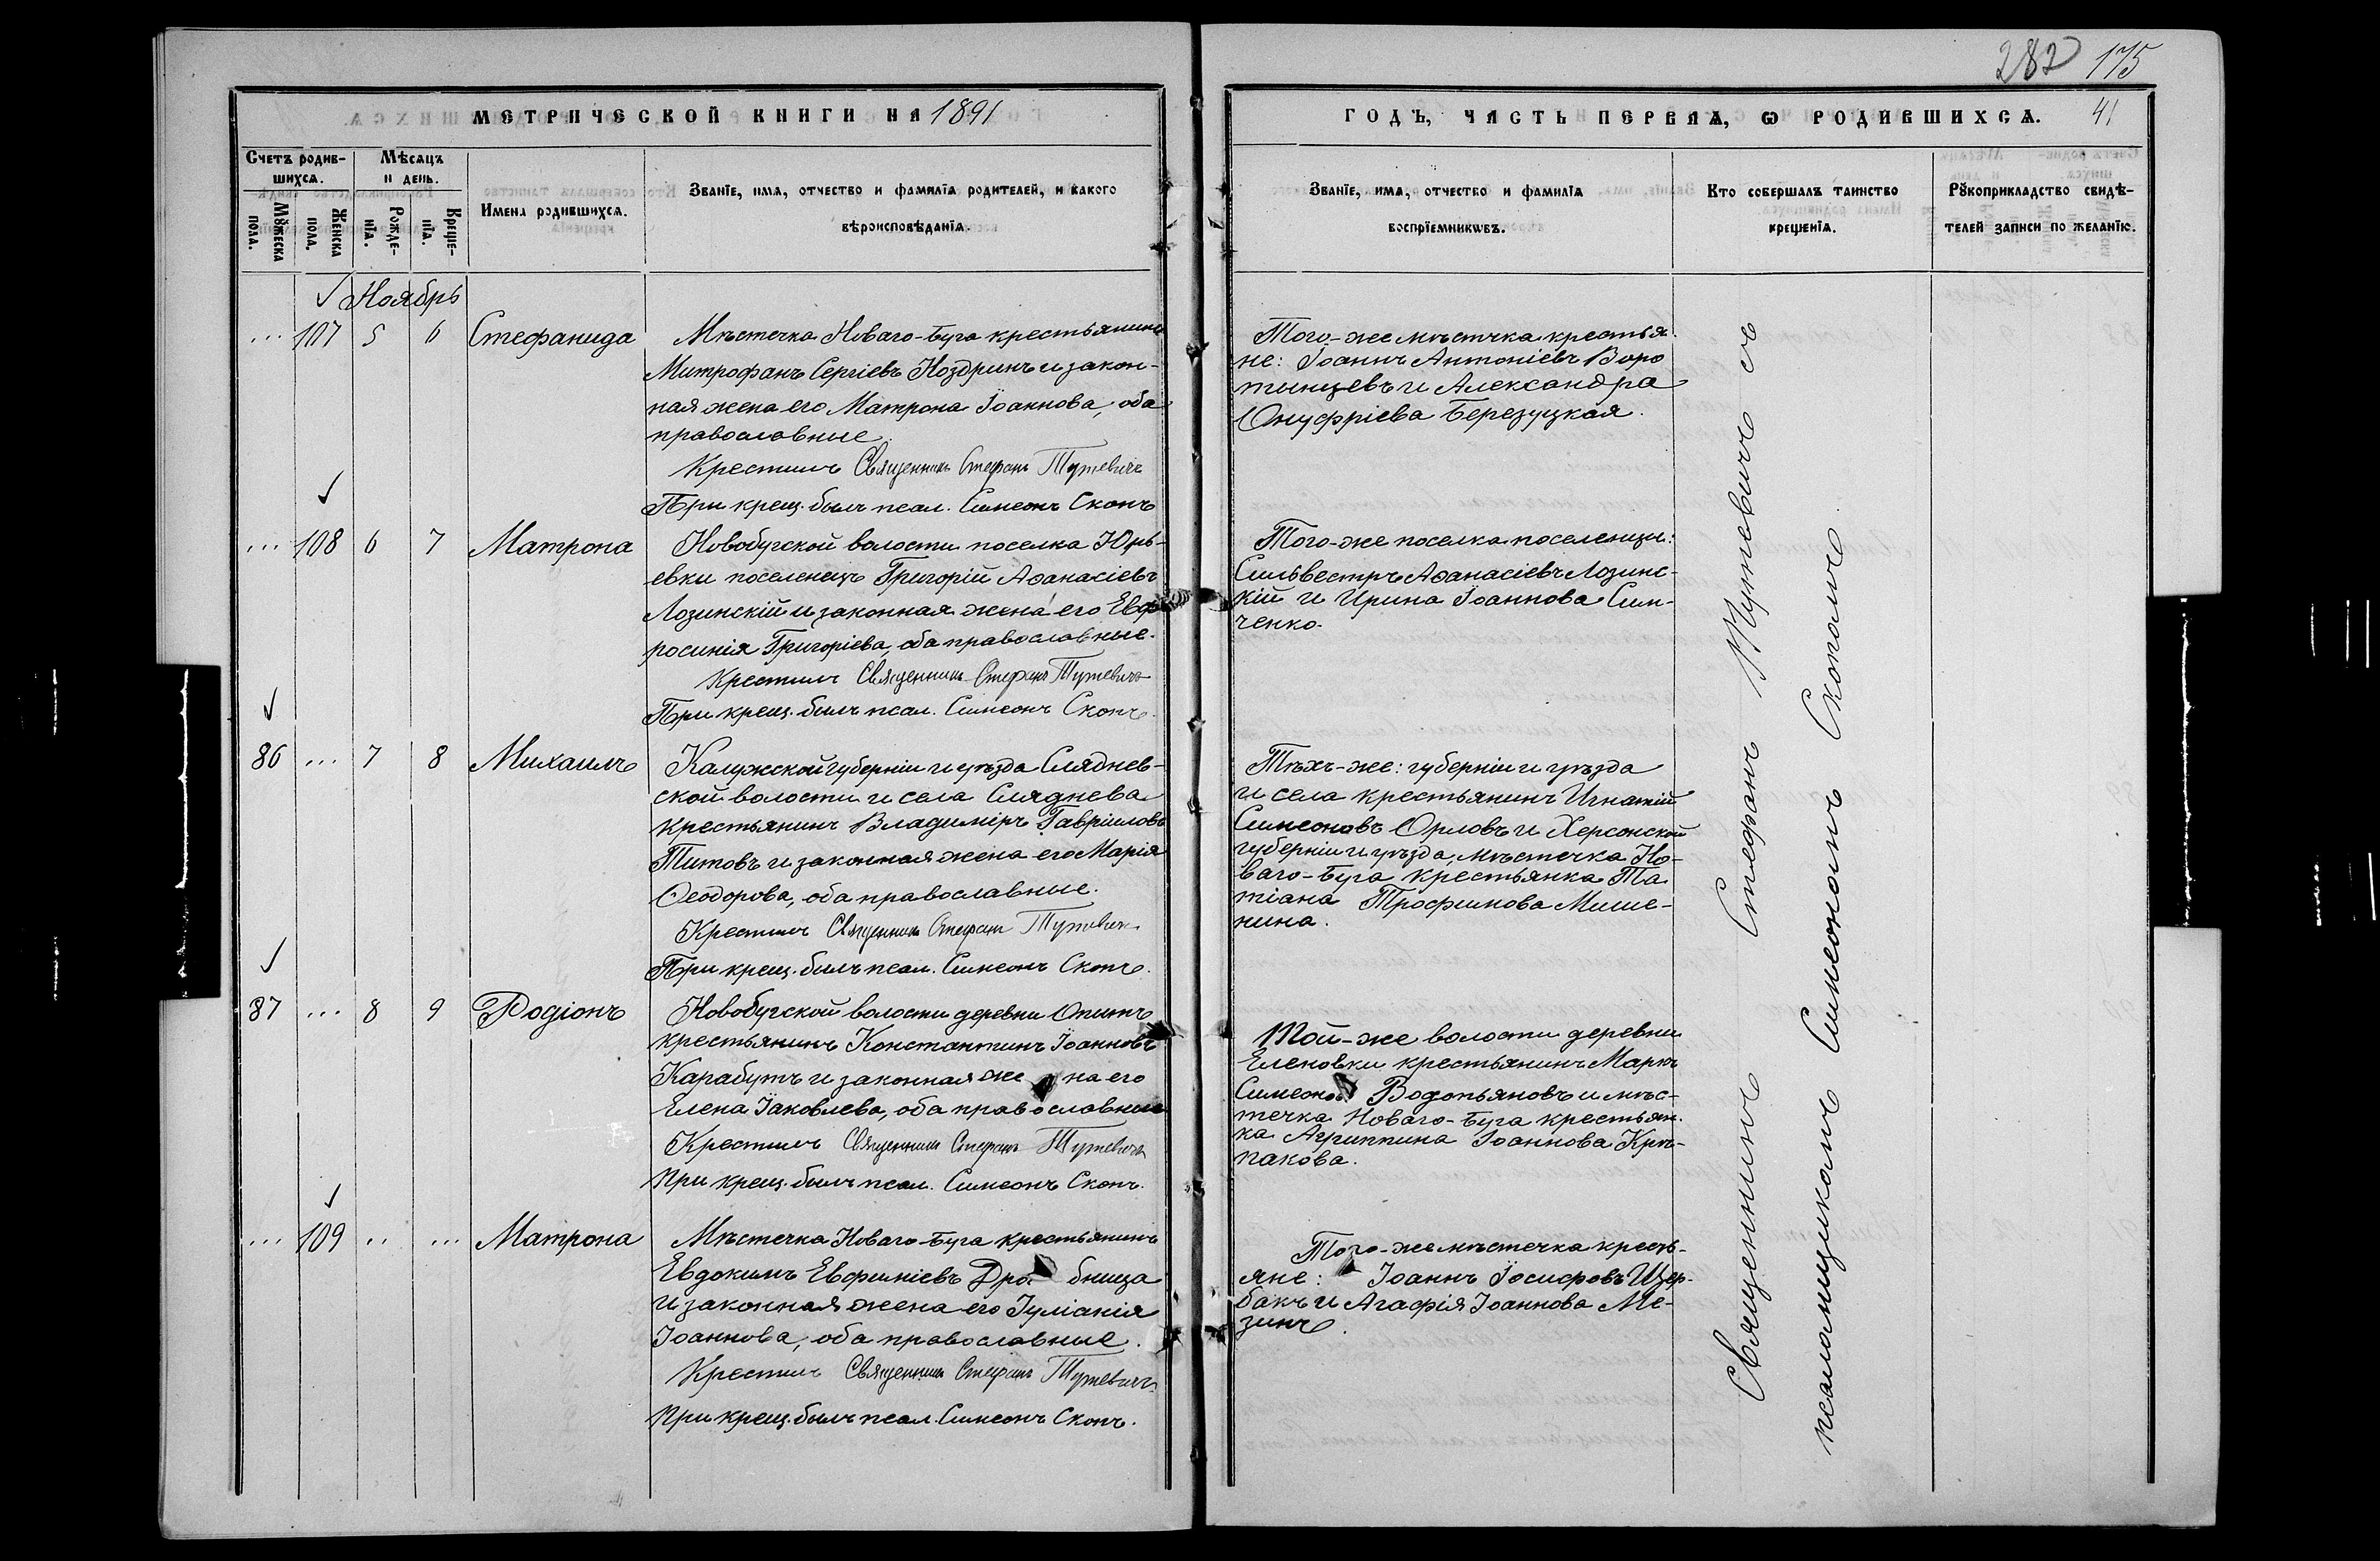 282 175
МЕТРИЧЕСКОЙ КНИГИ НА 1891
ГОДЪ, ЧАСТЬ ПЕРВАѦ, Ѡ РОДИВШИХСѦ. 41
Счетъ родив-
шихсѧ.
Мѣсѧцъ
и день.
Мꙋжеска
пола.
Женска
пола.
Рожде-
нїѧ.
Креще-
нїѧ.
Имена родившихсѧ.
Званїе, имѧ, отчество и фамилїѧ родителей, и какого
вѣроисповѣданїѧ.
Званїе, имѧ, отчество и фамилїѧ
воспрїемникѡвъ.
Кто совершалъ таинство
крещенїѧ.
Рꙋкоприкладство свидѣ-
телей записи по желанїю.
Ноябрь
... 107 5 6 Стефанида
Мѣстечка Новаго-Буга крестьянинъ
Митрофанъ Сергіевъ Ноздринъ и закон-
ная жена его Матрона Іоаннова, оба
православные.
Крестилъ Священникъ Стефанъ Тутевичъ
При крещ. былъ псал. Симеонъ Скопъ
Того-же мѣстечка крестья-
не: Іоаннъ Антоніевъ Воро
тынцевъ и Александра
Онуфріева Березуцкая.
... 108 6 7 Матрона
Новобугской волости поселка Юрь-
евки поселенецъ Григорій Аѳанасіевъ
Лозинскій и законная жена его Евф
росинія Григоріева, оба православные.
Крестилъ Священникъ Стефанъ Тутевичъ
При крещ. былъ псал. Симеонъ Скопъ.
Того-же поселка поселенцы:
Сильвестръ Аѳанасіевъ Лозинс-
кій и Ирина Іоаннова Сим-
ченко.
86 ... 7 8 Михаилъ
Калужской губерніи и уѣзда Сляднев-
ской волости и села Сляднева
крестьянинъ Владиміръ Гавріиловъ
Титовъ и законная жена его Марія
Ѳеодорова, оба православные.
Крестилъ Священникъ Стефанъ Тутевичъ
При крещ. былъ псал. Симеонъ Скопъ.
Тѣхъ-же: губерніи и уѣзда
и села крестьянинъ Игнатій
Симеоновъ Орловъ и Херсонской
губерніи и уѣзда, мѣстечка Но-
ваго-Буга крестьянка Та
тіана Трофимова Мише-
нина.
87 ... 8 9 Родіонъ
Новобугской волости деревни Опытъ
крестьянинъ Константинъ Іоанновъ
Карабутъ и законная же на его
Елена Іаковлева, оба православные
Крестилъ Священникъ Стефанъ Тутевичъ
При крещ. былъ псал. Симеонъ Скопъ.
Той-же волости деревни
Еленовки крестьянинъ Маркъ
Симеоновъ Водопьяновъ и мѣс-
течка Новаго-Буга крестьян-
ка Агриппина Іоаннова Крѣ-
пакова.
... 109 .. ... Матрона
Мѣстечка Новаго-Буга крестьянинъ
Евдокимъ Евфиміевъ Дро бница
и законная жена его Іуліанія
Іоаннова, оба православные.
Крестилъ Священникъ Стефанъ Тутевичъ
При крещ. былъ псал. Симеонъ Скопъ.
Того-же мѣстечка кресть-
яне: Іоаннъ Іосифовъ Щер-
бакъ и Агафія Іоаннова Ме-
зинъ.
Священникъ Стефанъ Тутевичъ съ
псаломщикомъ Симеономъ Скопомъ.